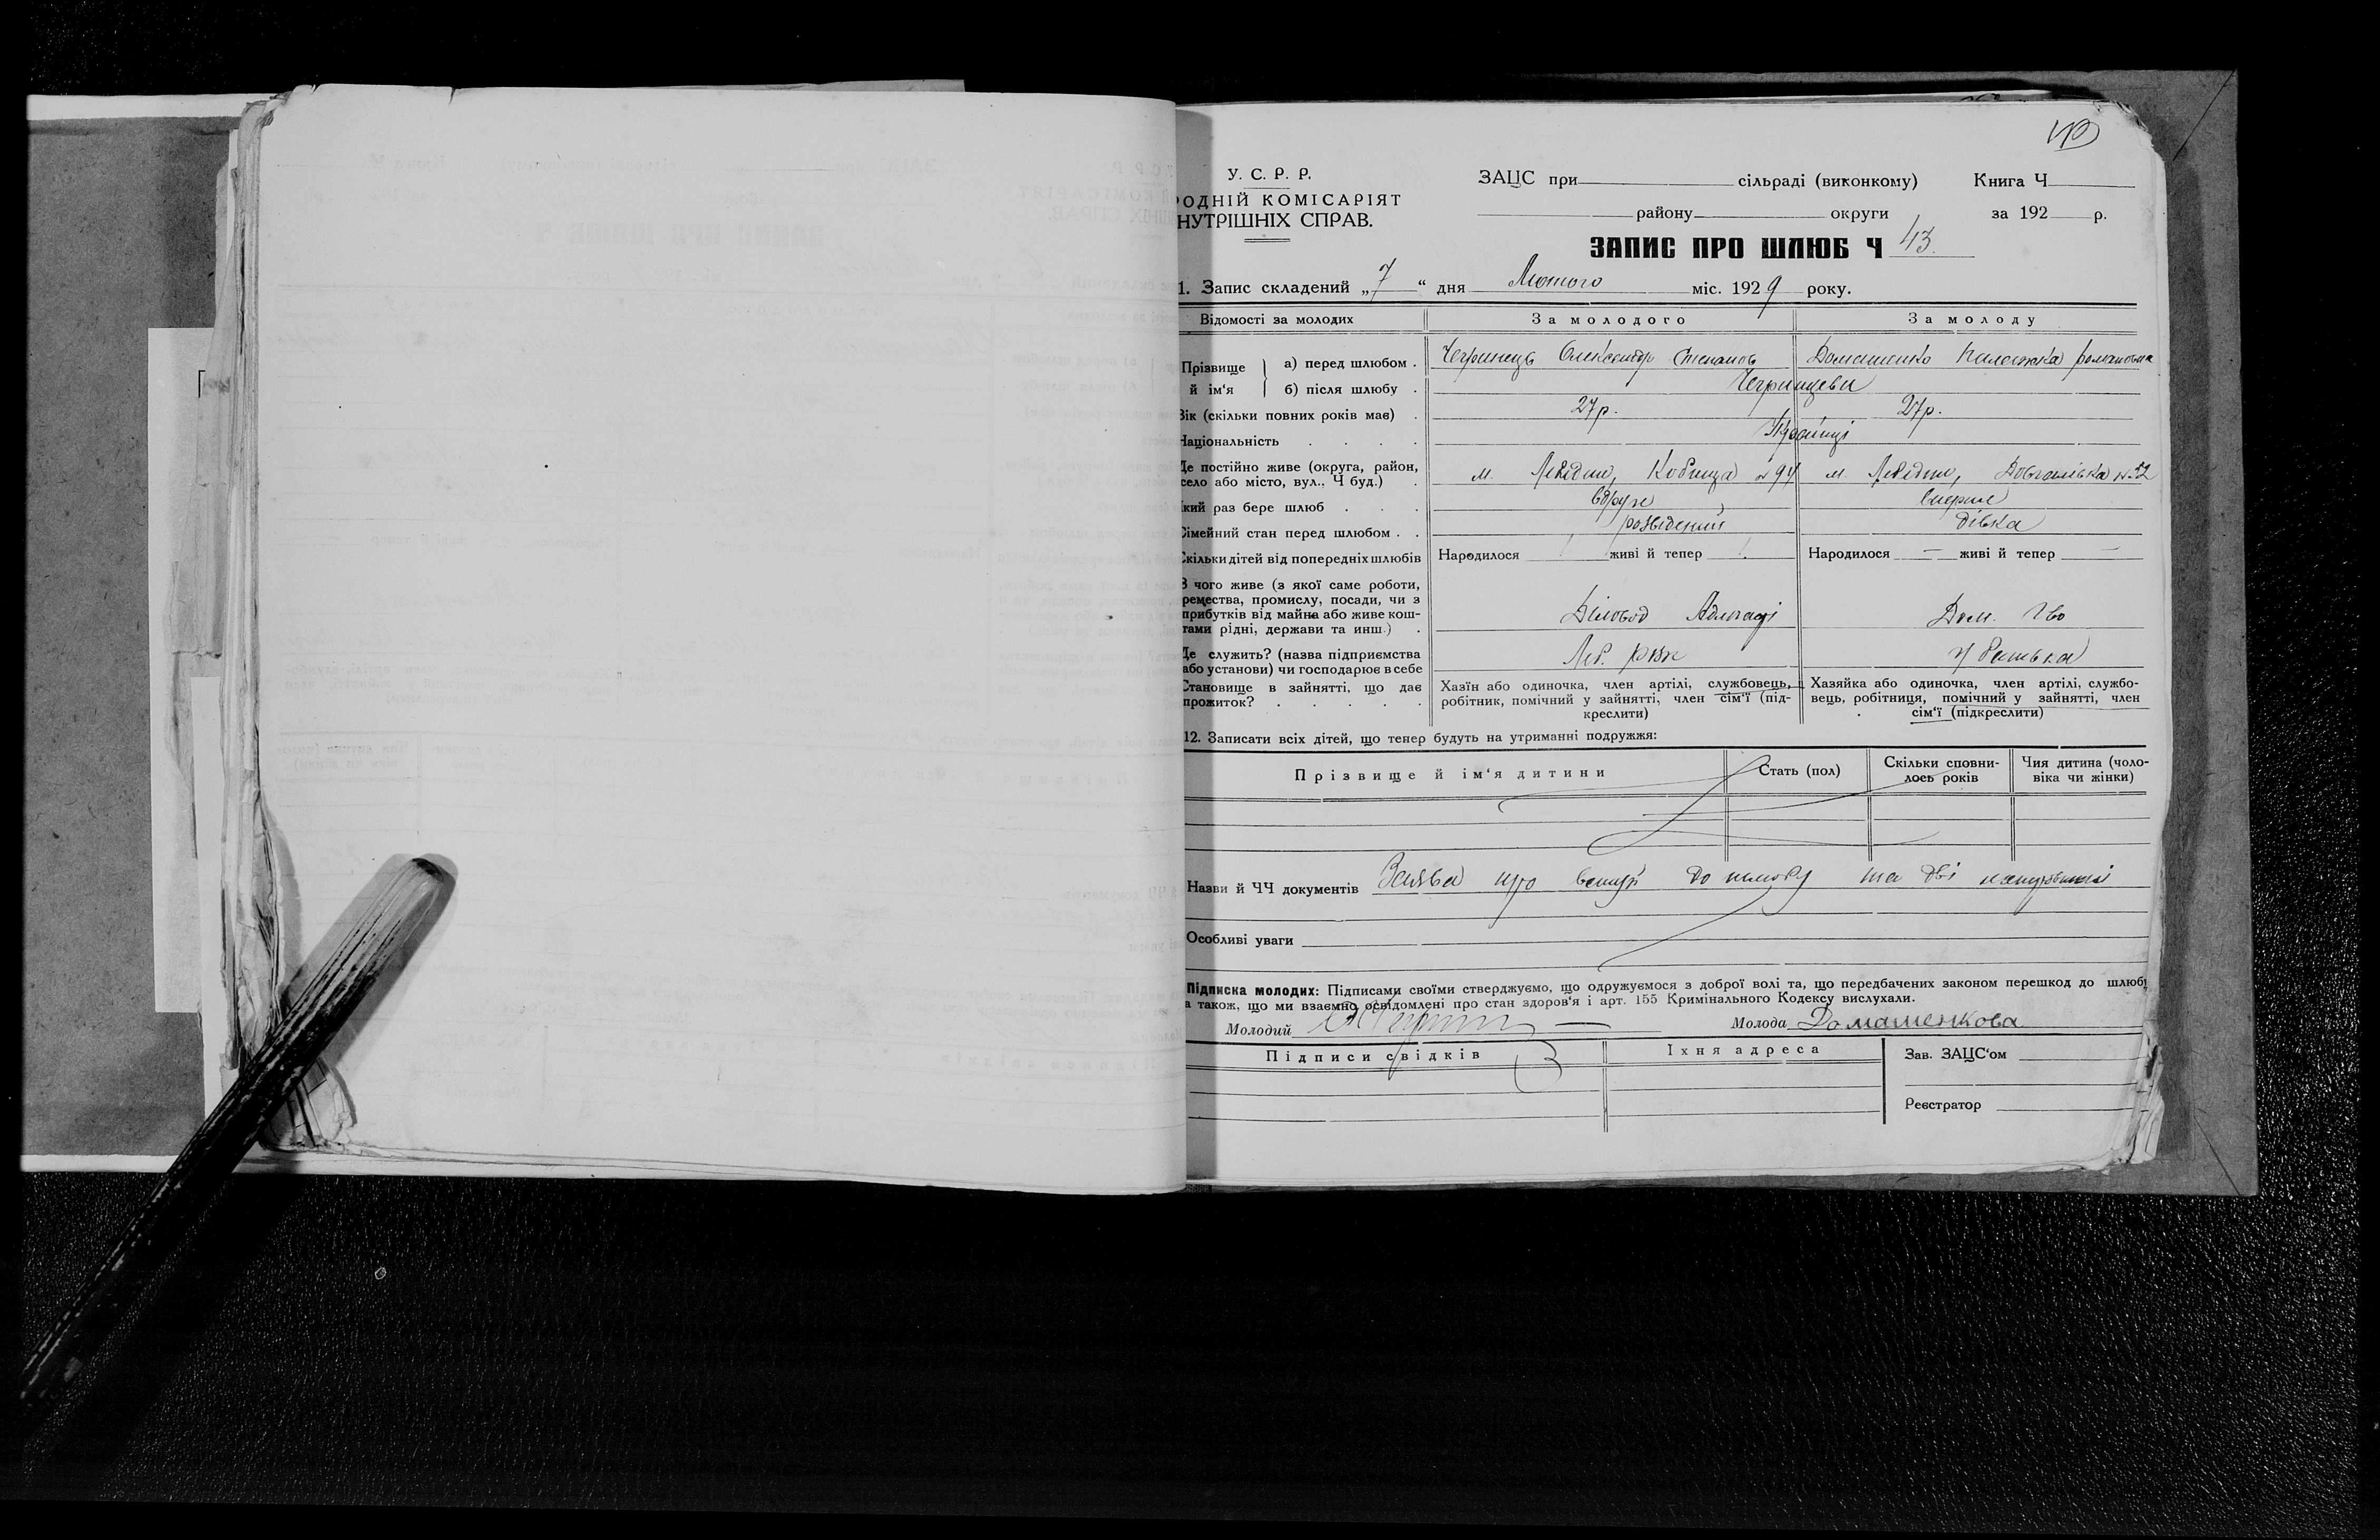 У. С. Р. Р.
ОДНІЙ КОМІСАРІЯТ
НУТРІШНІХ СПРАВ.
ЗАЦС при сільраді (виконкому) Книга Ч
району округи за 192 р.
ЗАПИС ПРО ШЛЮБ Ч 43.
1. Запис складений „7“ дня Лютого міс. 1929 року.
Відомості за молодих За молодого За молоду
Прізвище й ім‘я а) перед шлюбом . Олександр Степанов Домашенко Пелажка Романовна
б) після шлюбу .
Вік (скільки повних років має) . 27р. 27р.
Національність . . . . Українці
Де постійно живе (округа, район, село або місто, вул., Ч буд.) . м. Лебедин, Кобища №94 м. Лебедин, №52
який раз бере шлюб . . . вдруге вперше
Сімейний стан перед шлюбом . . розведений дівка
Скільки дітей від попередніх шлюбів Народилося 1 живі й тепер 1. Народилося — живі й тепер —
З чого живе (з якої саме роботи,
ремества, промислу, посади, чи з
прибутків від майна або живе кош-
тами рідні, держави та инш.) . Діловод Дом. г-во
Де служить? (назва підприємства
або установи) чи господарює в себе Леб. РВК У батька
Становище в зайнятті, що дає
прожиток? . . . . .
Хазїн або одиночка, член артілі, службовець,
робітник, помічний у зайнятті, член сім‘ї (під-
креслити)
Хазяйка або одиночка, член артілі, службо-
вець, робітниця, помічний у зайнятті, член
сім‘ї (підкреслити)
12. Записати всіх дітей, що тепер будуть на утриманні подружжя:
Прізвище й ім‘я дитини Стать (пол) Скільки сповни-
лось років Чия дитина (чоло-
віка чи жінки)
Назви й ЧЧ документів Заява про вступ до шлюбу та дві
Особливі уваги
Підписка молодих: Підписами своїми стверджуємо, що одружуємося з доброї волі та, що передбачених законом перешкод до шлюбу
а також, що ми взаємно освідомлені про стан здоров‘я і арт. 155 Кримінального Кодексу вислухали.
Молодий Молода Домашенкова
Підписи свідків Їхня адреса Зав. ЗАЦС‘ом
Реєстратор